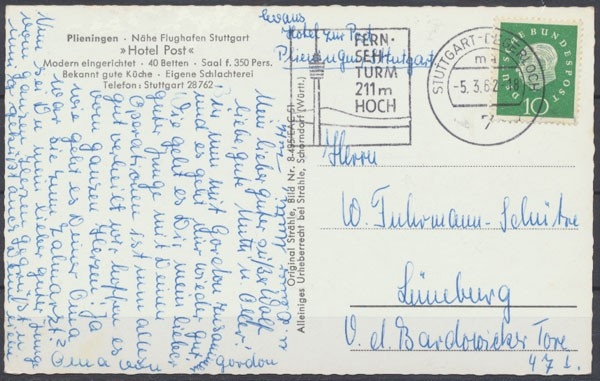 Plieningen · Nähe Flughafen Stuttgart
»Hotel Post«
Modern eingerichtet · 40 Betten · Saal f. 350 Pers.
Bekannt gute Küche · Eigene Schlachterei
Telefon: Stuttgart 28762
Hotel zur Post
Plieningen Stuttgart
FERN-
SEH-
TURM
211 m
HOCH
STUTTGART-DEGERLOCH
-5.3.62
7
DEUTSCHE BUNDESPOST
10
Original Strähle, Bild Nr.
Alleiniges Urheberrecht bei Strähle, Schorndorf (Württ.)
Mein lieber, guter, süßer Wolf
liebe, gute Mutti u. Oller!
nun mit Gordon zusammen
und es geht ihr wieder gut.
Wie geht es Dir, mein lieber
guter Junge mit Deinen
Operationen ist nun alles
gut verheilt wir hoffen es
vom ganzen Herzen! Ja
wie geht es Deiner Oma
war sie zum Zahnarzt?
Nun sei Du mein lieber guter Junge
vom ganzen Herzen gegrüßt u.
Oma
Gordon
Herrn
W. Fuhrmann-Schütze
Lüneburg
V. d. Bardowicker Tore
47 I.